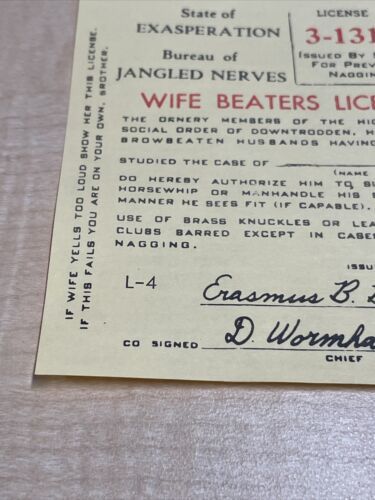 State of
EXASPERATION
Bureau of
JANGLED NERVES
LICENSE
3-131
ISSUED BY
FOR PREV
NAGGIN
WIFE BEATERS LICE
THE ORNERY MEMBERS OF THE HIG
SOCIAL ORDER OF DOWNTRODDEN, H
BROWBEATEN HUSBANDS HAVING
STUDIED THE CASE OF
(NAME
DO HEREBY AUTHORIZE HIM TO S
HORSEWHIP OR MANHANDLE HIS
MANNER HE SEES FIT (IF CAPABLE).
USE OF BRASS KNUCKLES OR LEA
CLUBS BARRED EXCEPT IN CASE
NAGGING.
ISSU
L-4
Erasmus B.
CO SIGNED D. Wormha
CHIEF
IF WIFE YELLS TOO LOUD SHOW HER THIS LICENSE.
IF THIS FAILS YOU ARE ON YOUR OWN, BROTHER.